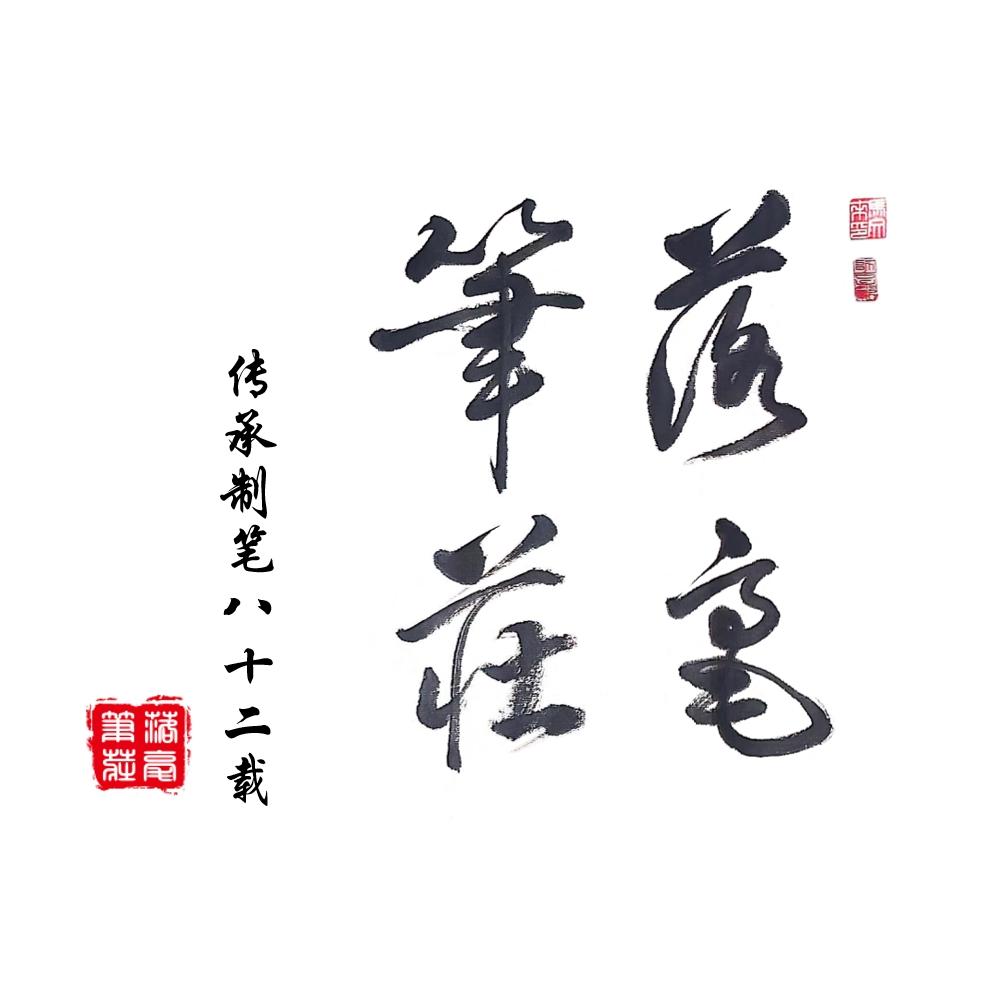 落毫
筆莊
传承制笔八十二载
落毫
筆莊